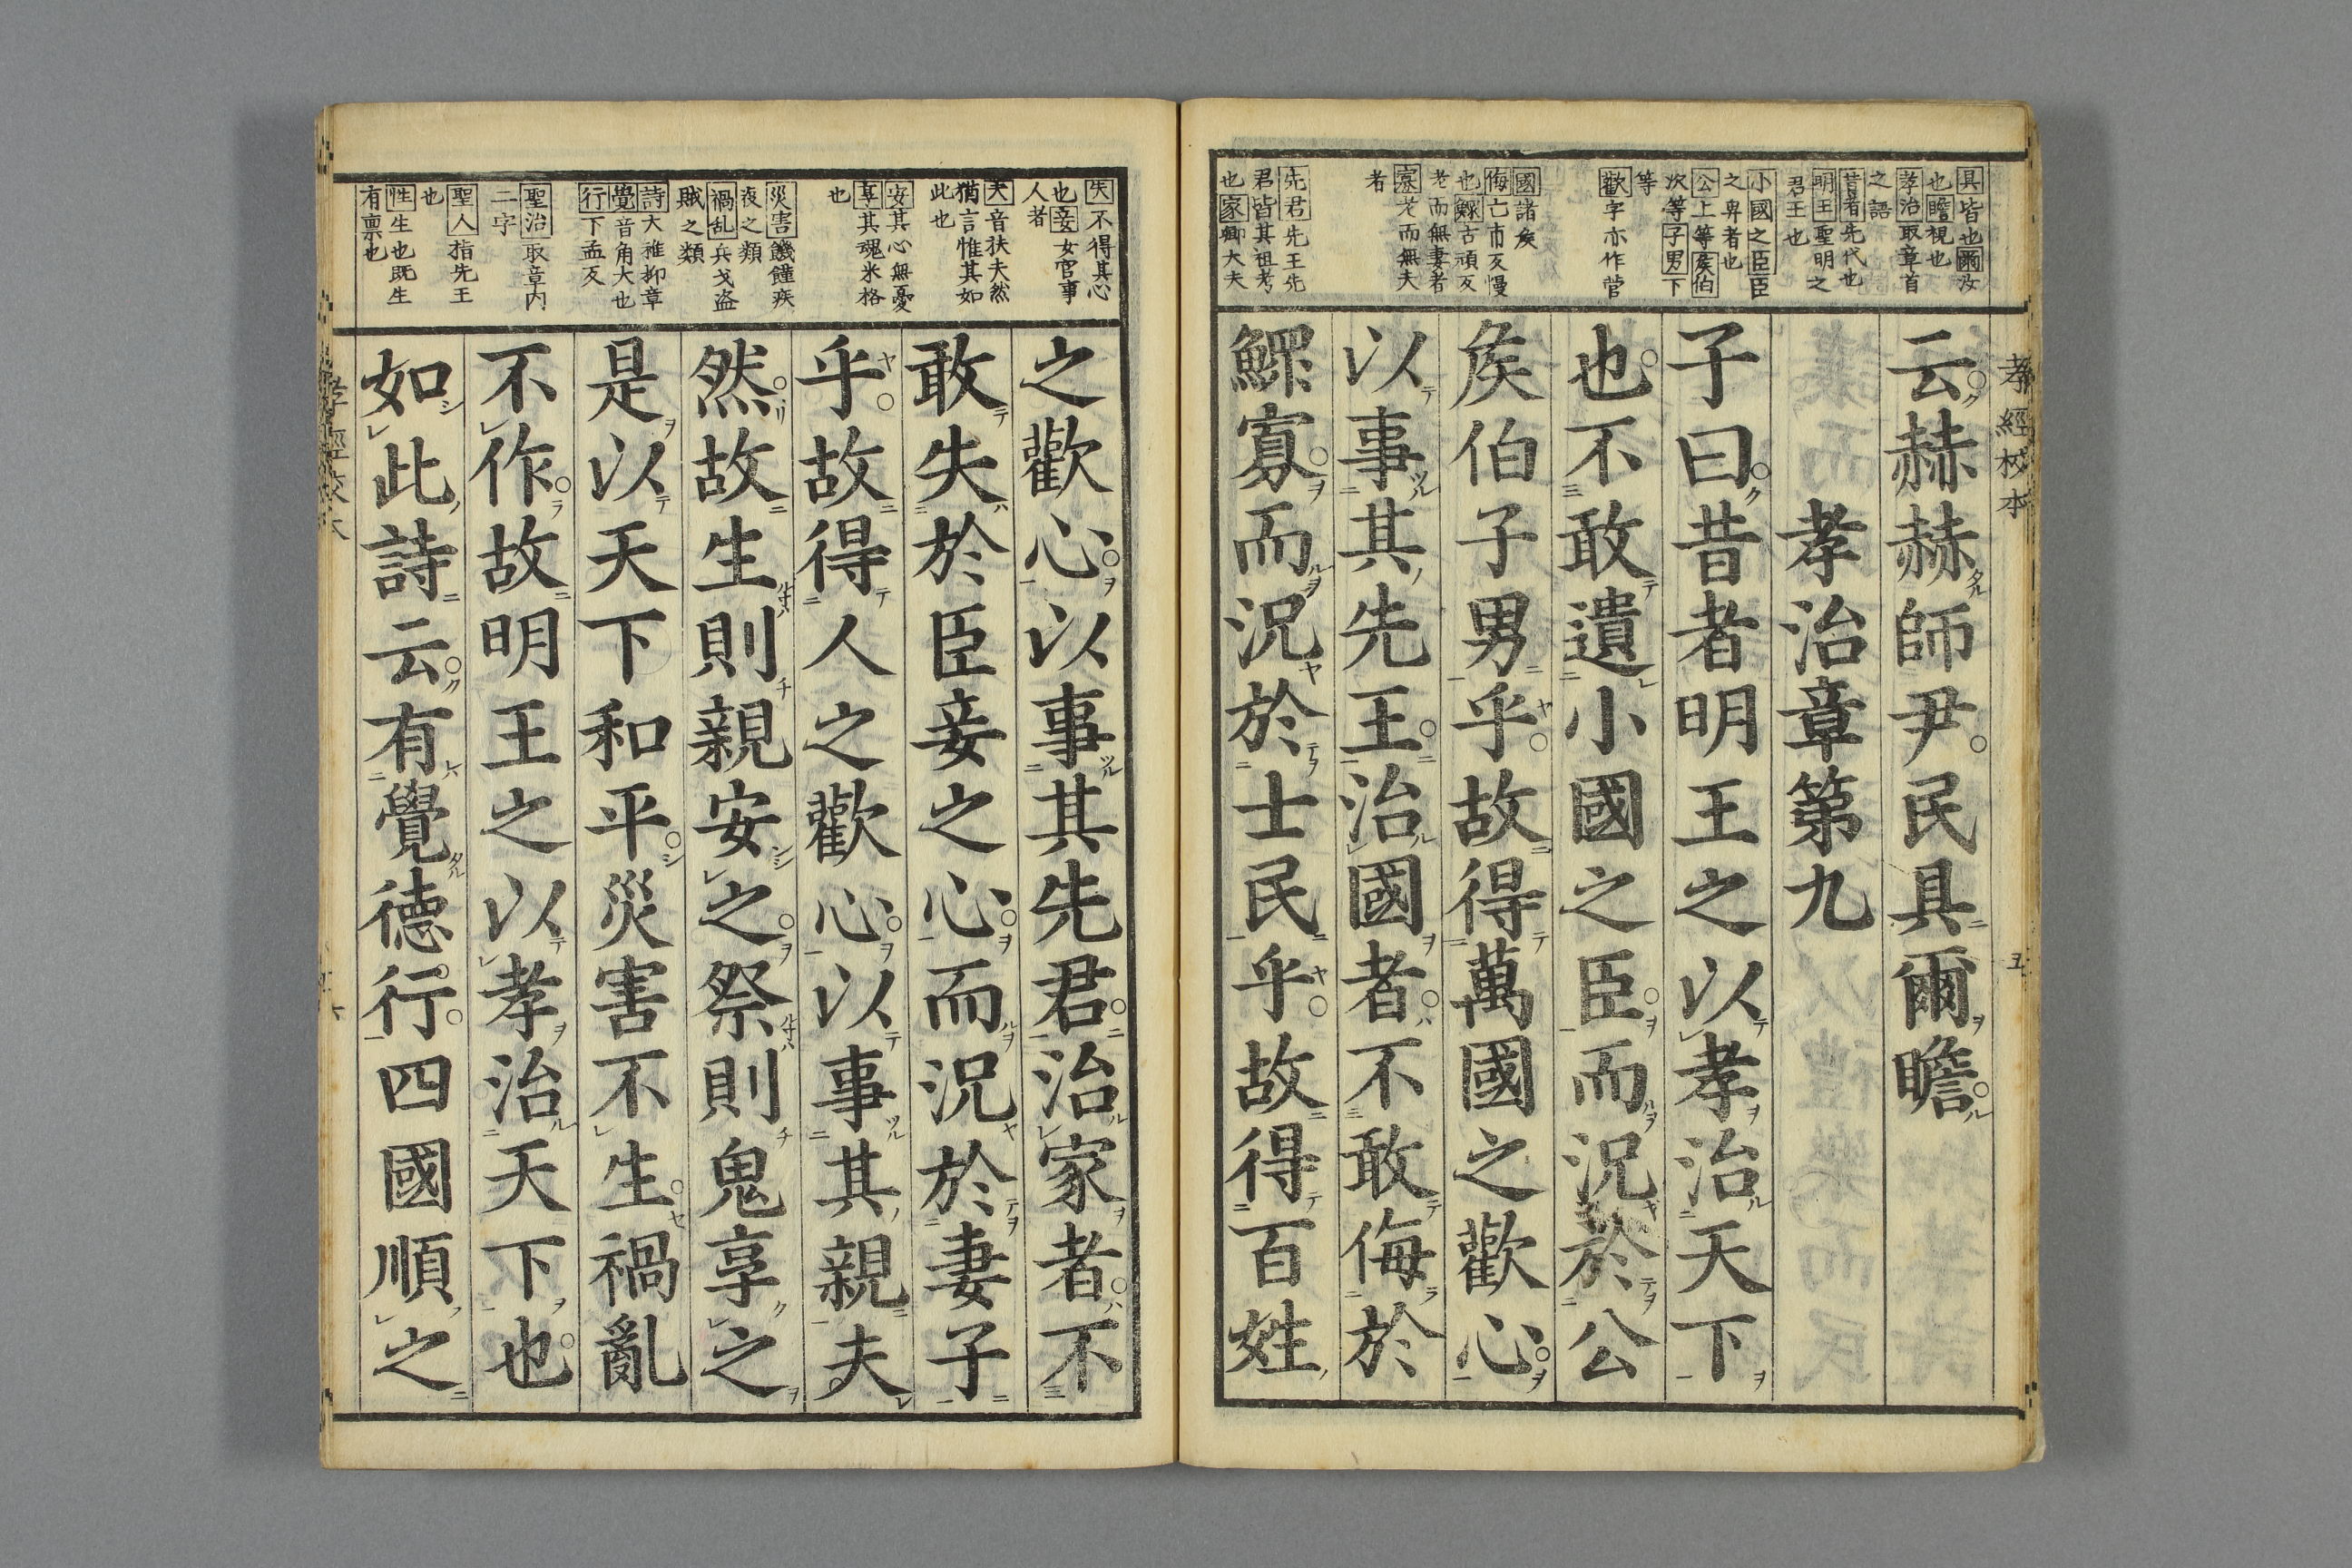 孝經校本
五
具皆也爾汝
也瞻視也
孝治取章首
之語
昔者先代也
明王聖明之
君王也
小國之臣臣
之卑者也
公上等矦伯
次等子男下
等
歡字亦作
國諸矦
侮亡市反慢
也鰥古頑反
老而無妻者
寡老而無夫
者
先君先王先
君皆其祖考
也家卿大夫
云赫赫師尹民具爾瞻
孝治章第九
子曰昔者明王之以孝治天下
也不敢遺小國之臣而況於公
矦伯子男乎故得萬國之歡心
以事其先王治國者不敢侮於
鰥寡而況於士民乎故得百姓
失不得其心
也妾女官事
人者
夫音扶夫然
猶言惟其如
此也
安其心無憂
享其魂来格
也
災害饑饉疾
夜之類
禍乱兵戈盗
賊之類
詩大雅抑章
覺音角大也
行下孟反
聖治取章内
二字
聖人指先王
也
性生也既生
有禀也
之歡心以事其先君治家者不
敢失於臣妾之心而況於妻子
乎故得人之歡心以事其親夫
然故生則親安之祭則鬼享之
是以天下和平災害不生禍亂
不作故明王之以孝治天下也
如此詩云有覺德行四國順之